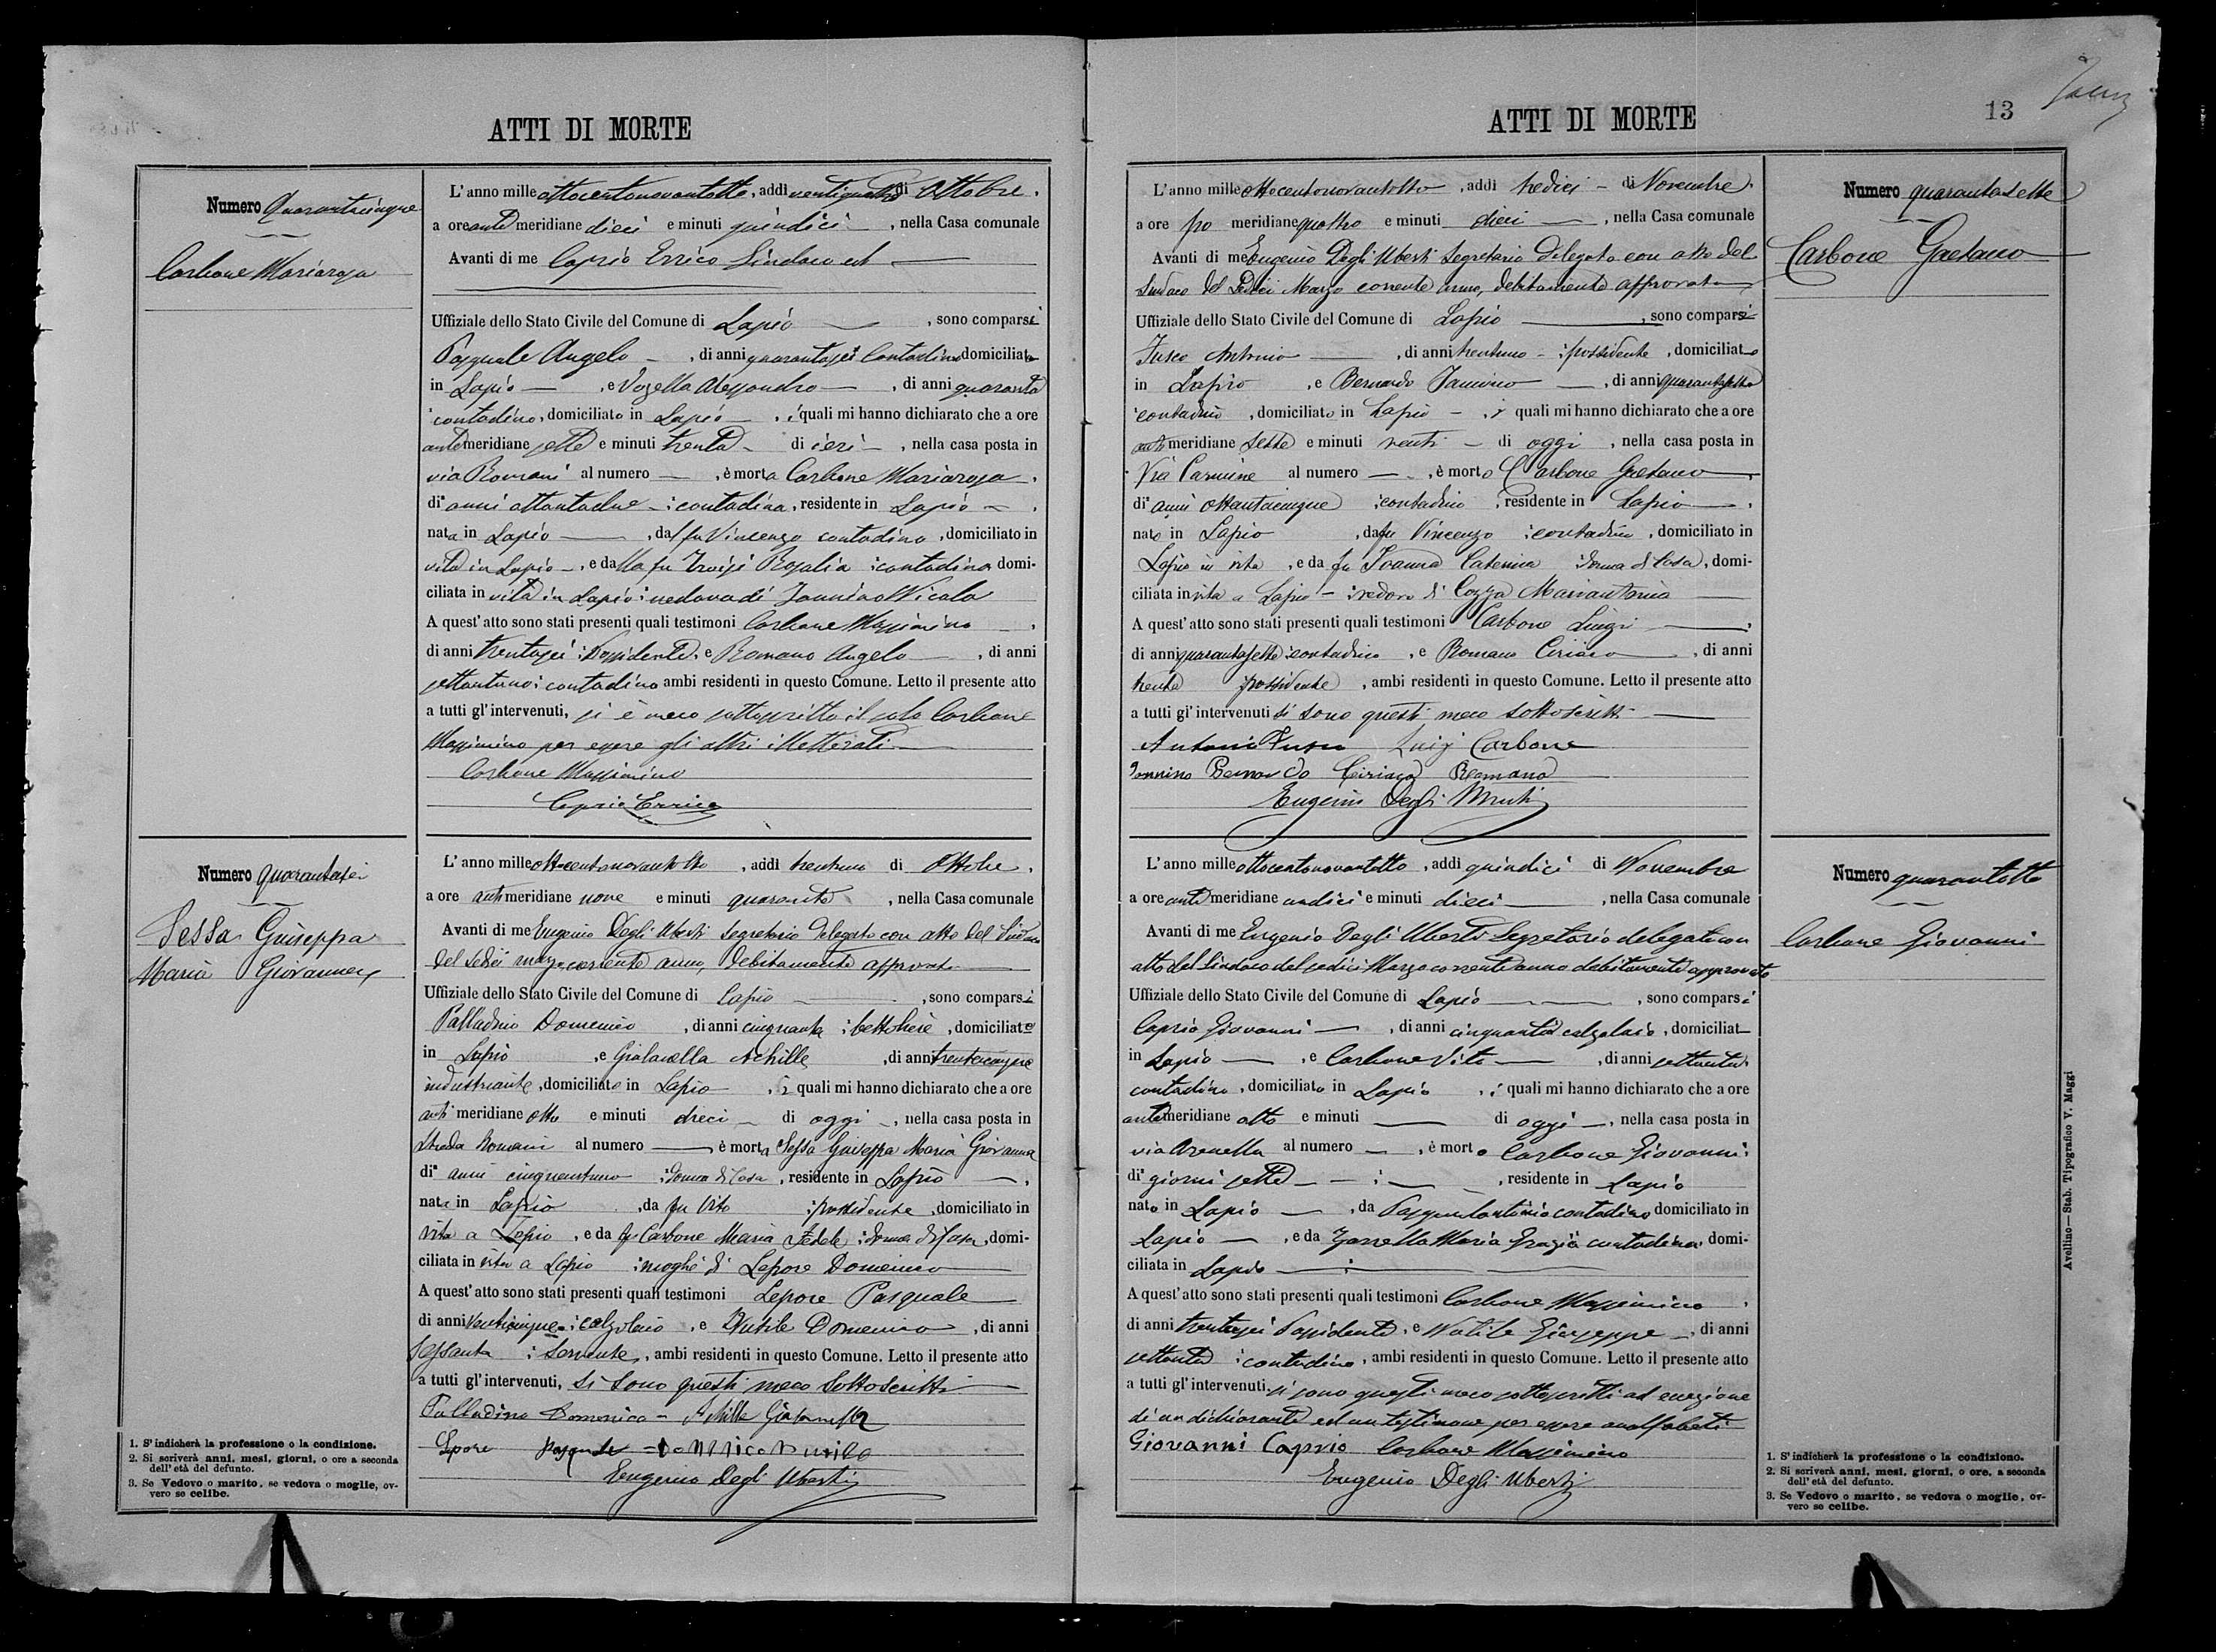 ATTI DI MORTE
Numero Quarantacinque
Carbone Mariarosa
L'anno mille ottocentonovantotto, addì ventiquattro di Ottobre,
a ore ante meridiane dieci e minuti quindici, nella Casa comunale
Avanti di me Caprio Errico Sindaco ed
Uffiziale dello Stato Civile del Comune di Lapio, sono comparsi
Pasquale Angelo, di anni quarantasei contadino domiciliato
in Lapio, e Vozella Alessandro, di anni quaranta
contadino, domiciliato in Lapio, i quali mi hanno dichiarato che a ore
antimeridiane sette e minuti trenta di ieri, nella casa posta in
via Romani al numero —, è morta Carbone Mariarosa,
di anni ottantadue contadina, residente in Lapio,
nata in Lapio, dal fu Vincenzo contadino, domiciliato in
vita in Lapio, e dalla fu Rosalia contadina domi-
ciliata in vita in Lapio vedova di Iannino Nicola
A quest'atto sono stati presenti quali testimoni Carbone Massimino,
di anni trentasei Possidente, e Romano Angelo, di anni
settantuno contadino ambi residenti in questo Comune. Letto il presente atto
a tutti gl'intervenuti, si è meco sottoscritto il solo Carbone
Massimino per essere gli altri illetterati
Carbone Massimino
Caprio Errico
Numero quarantasei
Sessa Giuseppa
Maria Giovanna
L'anno mille ottocentonovantotto, addì trentuno di Ottobre,
a ore antimeridiane nove e minuti quaranta, nella Casa comunale
Avanti di me Eugenio Degli Uberti Segretario delegato con atto del Sindaco
del sedici marzo corrente anno, debitamente approvato
Uffiziale dello Stato Civile del Comune di Lapio, sono comparsi
Palladino Domenico, di anni cinquanta bettoliere, domiciliato
in Lapio, e Achille, di anni trentacinque
industriante, domiciliato in Lapio, i quali mi hanno dichiarato che a ore
anti meridiane otto e minuti dieci di oggi, nella casa posta in
Strada Romani al numero —, è morta Sessa Giuseppa Maria Giovanna
di anni cinquantuno donna di Casa, residente in Lapio,
nata in Lapio, da fu Vito possidente, domiciliato in
vita a Lapio, e da fu Carbone Maria Fedele donna di Casa, domi-
ciliata in vita a Lapio moglie di Lepore Domenico
A quest'atto sono stati presenti quali testimoni Lepore Pasquale
di anni venticinque calzolaio, e Nutile Domenico, di anni
Sessanta Servente, ambi residenti in questo Comune. Letto il presente atto
a tutti gl'intervenuti, si sono questi meco sottoscritti
Palladino Domenico - Achille
Lepore Pasquale - Domenico Nutile
Eugenio Degli Uberti
1. S'indicherà la professione o la condizione.
2. Si scriverà anni, mesi, giorni, o ore a seconda
dell'età del defunto.
3. Se Vedovo o marito, se vedova o moglie, ov-
vero se celibe.
ATTI DI MORTE
13
L'anno mille ottocentonovantotto, addì tredici di Novembre,
a ore po meridiane quattro e minuti dieci, nella Casa comunale
Avanti di me Eugenio Degli Uberti Segretario delegato con atto del
Sindaco del Sedici Marzo corrente anno, debitamente approvato
Uffiziale dello Stato Civile del Comune di Lapio, sono comparsi
Fusco Antonio, di anni trentuno possidente, domiciliato
in Lapio, e Bernardo Iannino, di anni quarantasette
contadino, domiciliato in Lapio, i quali mi hanno dichiarato che a ore
anti meridiane sette e minuti venti di oggi, nella casa posta in
Via Carmine al numero —, è morto Carbone Gaetano,
di anni ottantacinque contadino, residente in Lapio,
nato in Lapio, da fu Vincenzo contadino, domiciliato in
Lapio in vita, e da fu Caterina donna di Casa, domi-
ciliata in vita a Lapio vedovo di Cozza Mariantonia
A quest'atto sono stati presenti quali testimoni Carbone Luigi,
di anni quarantasette contadino, e Romano Ciriaco, di anni
trenta possidente, ambi residenti in questo Comune. Letto il presente atto
a tutti gl'intervenuti si sono questi meco sottoscritti
Antonio Fusco Luigi Carbone
Iannino Bernardo Ciriaco Romano
Eugenio Degli Uberti
Numero quarantasette
Carbone Gaetano
L'anno mille ottocentonovantotto, addì quindici di Novembre
a ore ante meridiane undici e minuti dieci, nella Casa comunale
Avanti di me Eugenio Degli Uberti Segretario delegato con
atto del Sindaco del sedici Marzo corrente anno debitamente approvato
Uffiziale dello Stato Civile del Comune di Lapio, sono comparsi
Caprio Giovanni, di anni cinquanta calzolaio, domiciliat
in Lapio, e Carbone Vito, di anni settanta
contadino, domiciliato in Lapio, i quali mi hanno dichiarato che a ore
antimeridiane otto e minuti — di oggi, nella casa posta in
via Arenella al numero —, è morto Carbone Giovanni
di giorni sette, residente in Lapio
nato in Lapio, da Pasqualantonio contadino domiciliato in
Lapio, e da Maria Grazia contadina domi-
ciliata in Lapio
A quest'atto sono stati presenti quali testimoni Carbone Massimino,
di anni trentasei Possidente, e Nutile Giuseppe, di anni
settanta contadino, ambi residenti in questo Comune. Letto il presente atto
a tutti gl'intervenuti si sono questi meco sottoscritti ad eccezione
di un dichiarante ed un testimone per essere analfabeti
Giovanni Caprio Carbone Massimino
Eugenio Degli Uberti
Numero quarantotto
Carbone Giovanni
1. S'indicherà la professione o la condizione.
2. Si scriverà anni, mesi, giorni, o ore, a seconda
dell'età del defunto.
3. Se Vedovo o marito, se vedova o moglie, ov-
vero se celibe.
Avellino—Stab. Tipografico V. Maggi